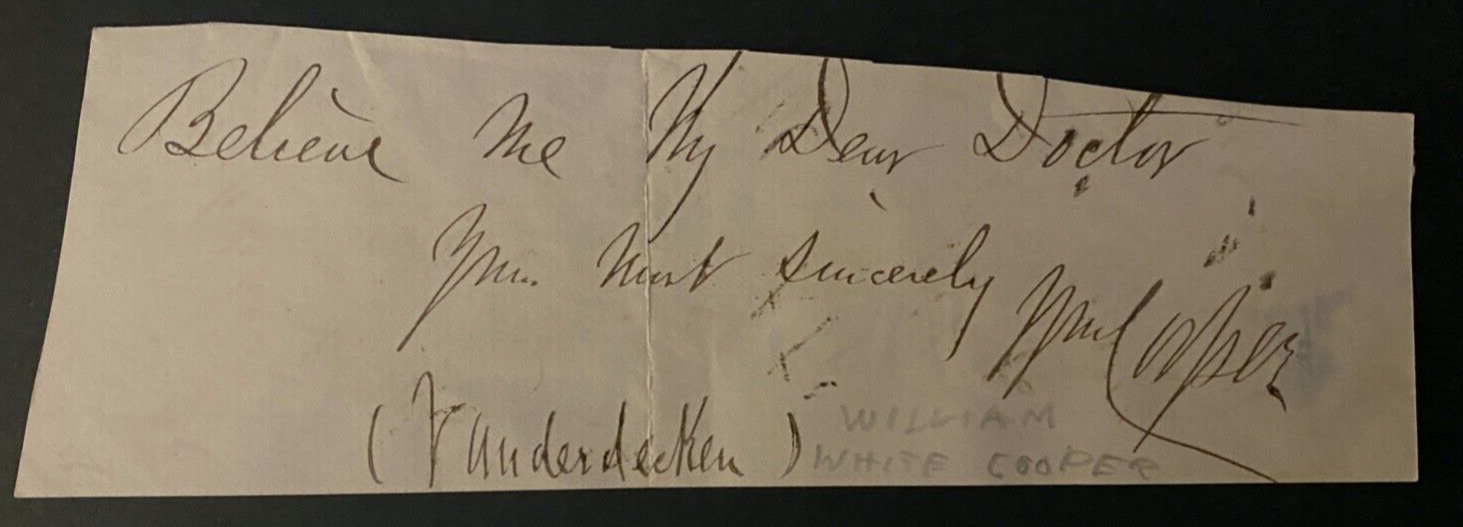 Believe Me My Dear Doctor
Yours Most Sincerely Wm Cooper
(Vanderdecken)
WILLIAM
WHITE COOPER